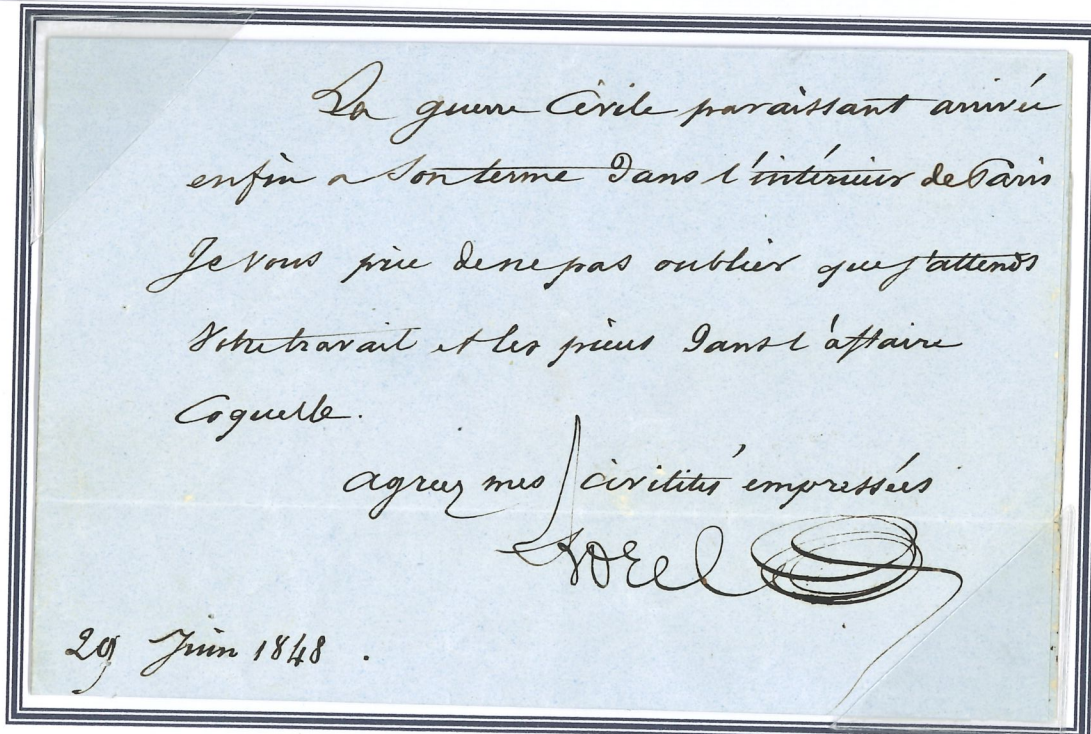 La guerre Civile paraissant arrivée
enfin a Son terme Dans l'intérieur de Paris
Je vous prie de ne pas oublier que j'attends
Votre travail et les pièces Dans l'affaire
Coquelle.
agreez mes civilités empressées
29 Juin 1848.